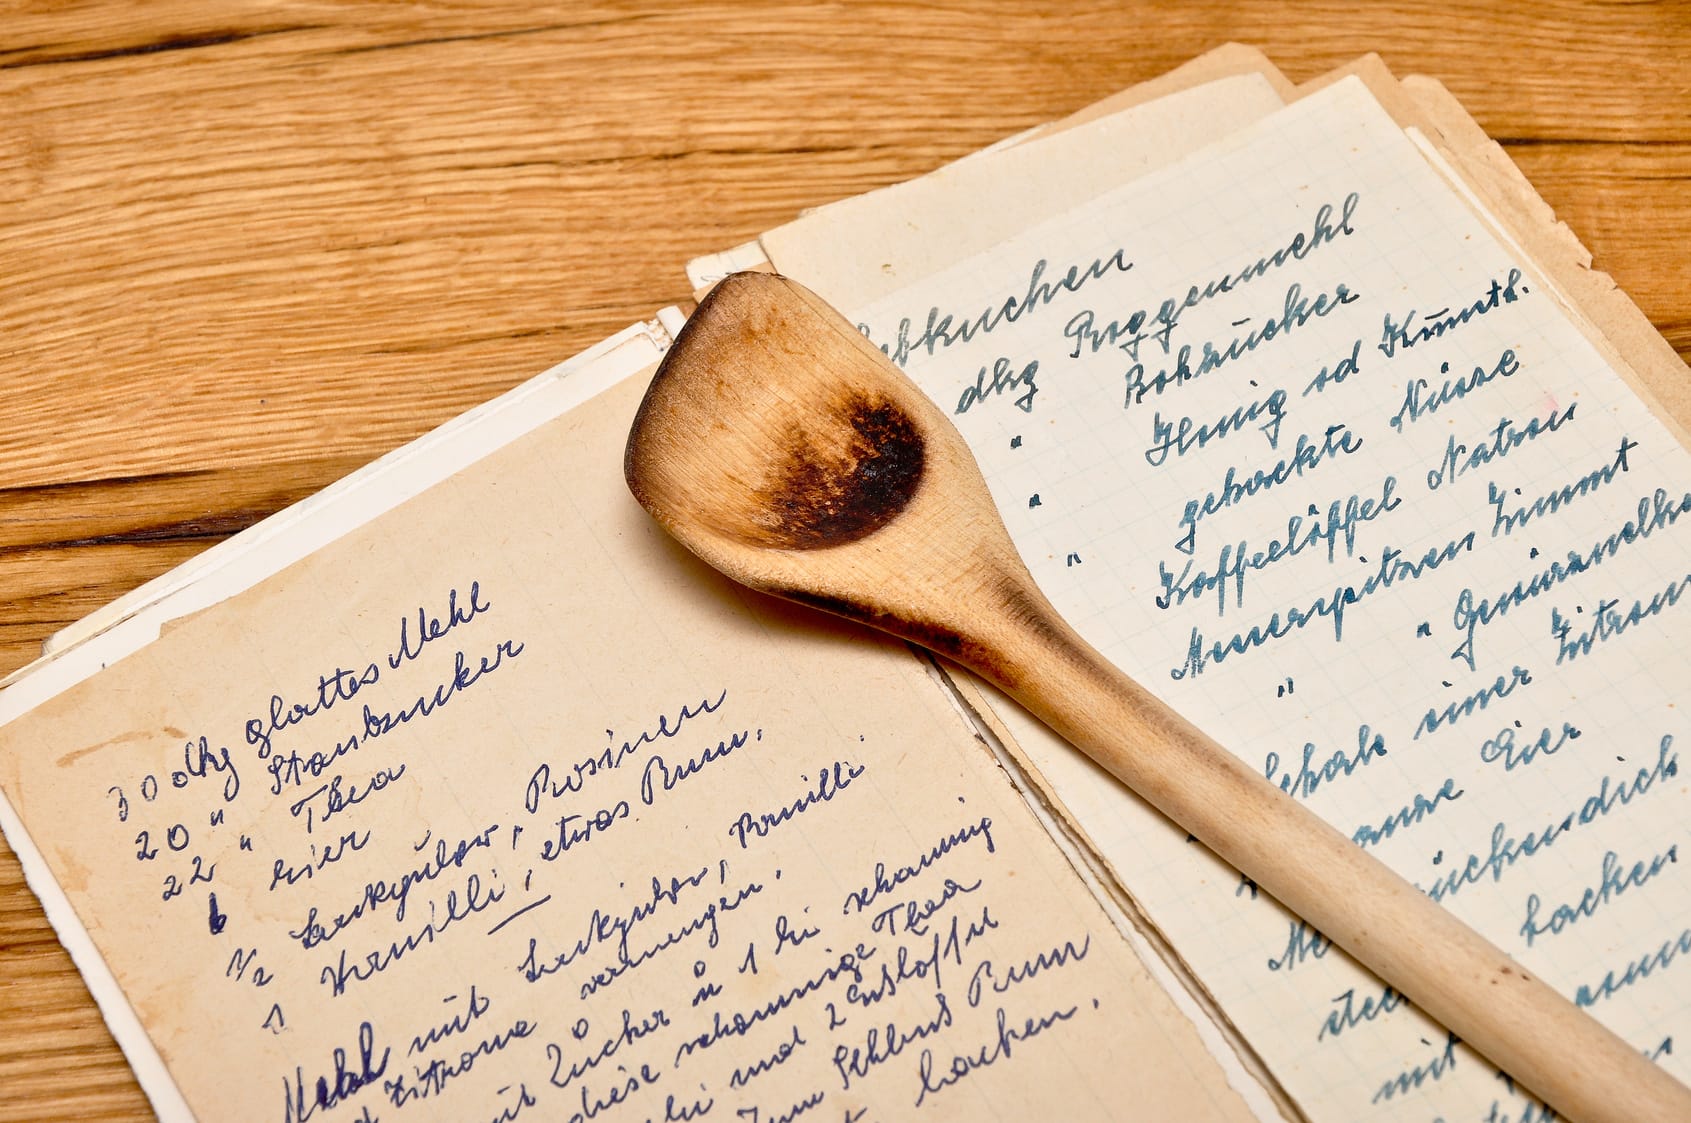 30 dkg glattes Mehl
20 " Staubzucker
22 " Thea
6 Eier
1/2 Backpulver, Rosinen
1 Vanilli, etwas Rum.
Mehl mit Backpulver, Vanilli
Zitrone vermengen.
mit Zucker u 1 Ei schaumig
diese schaumige Thea
Ei und 2 Esslöffel
Zum Schluß Rum
backen.
Lebkuchen
dkg Roggenmehl
" Rohzucker
" Honig od Kunsth.
" gehackte Nüsse
Kaffeelöffel Natron
Messerspitzen Zimmt
" " Gewürznelke
Schale einer Zitrone
ganze Eier
rückendick
backen
mit